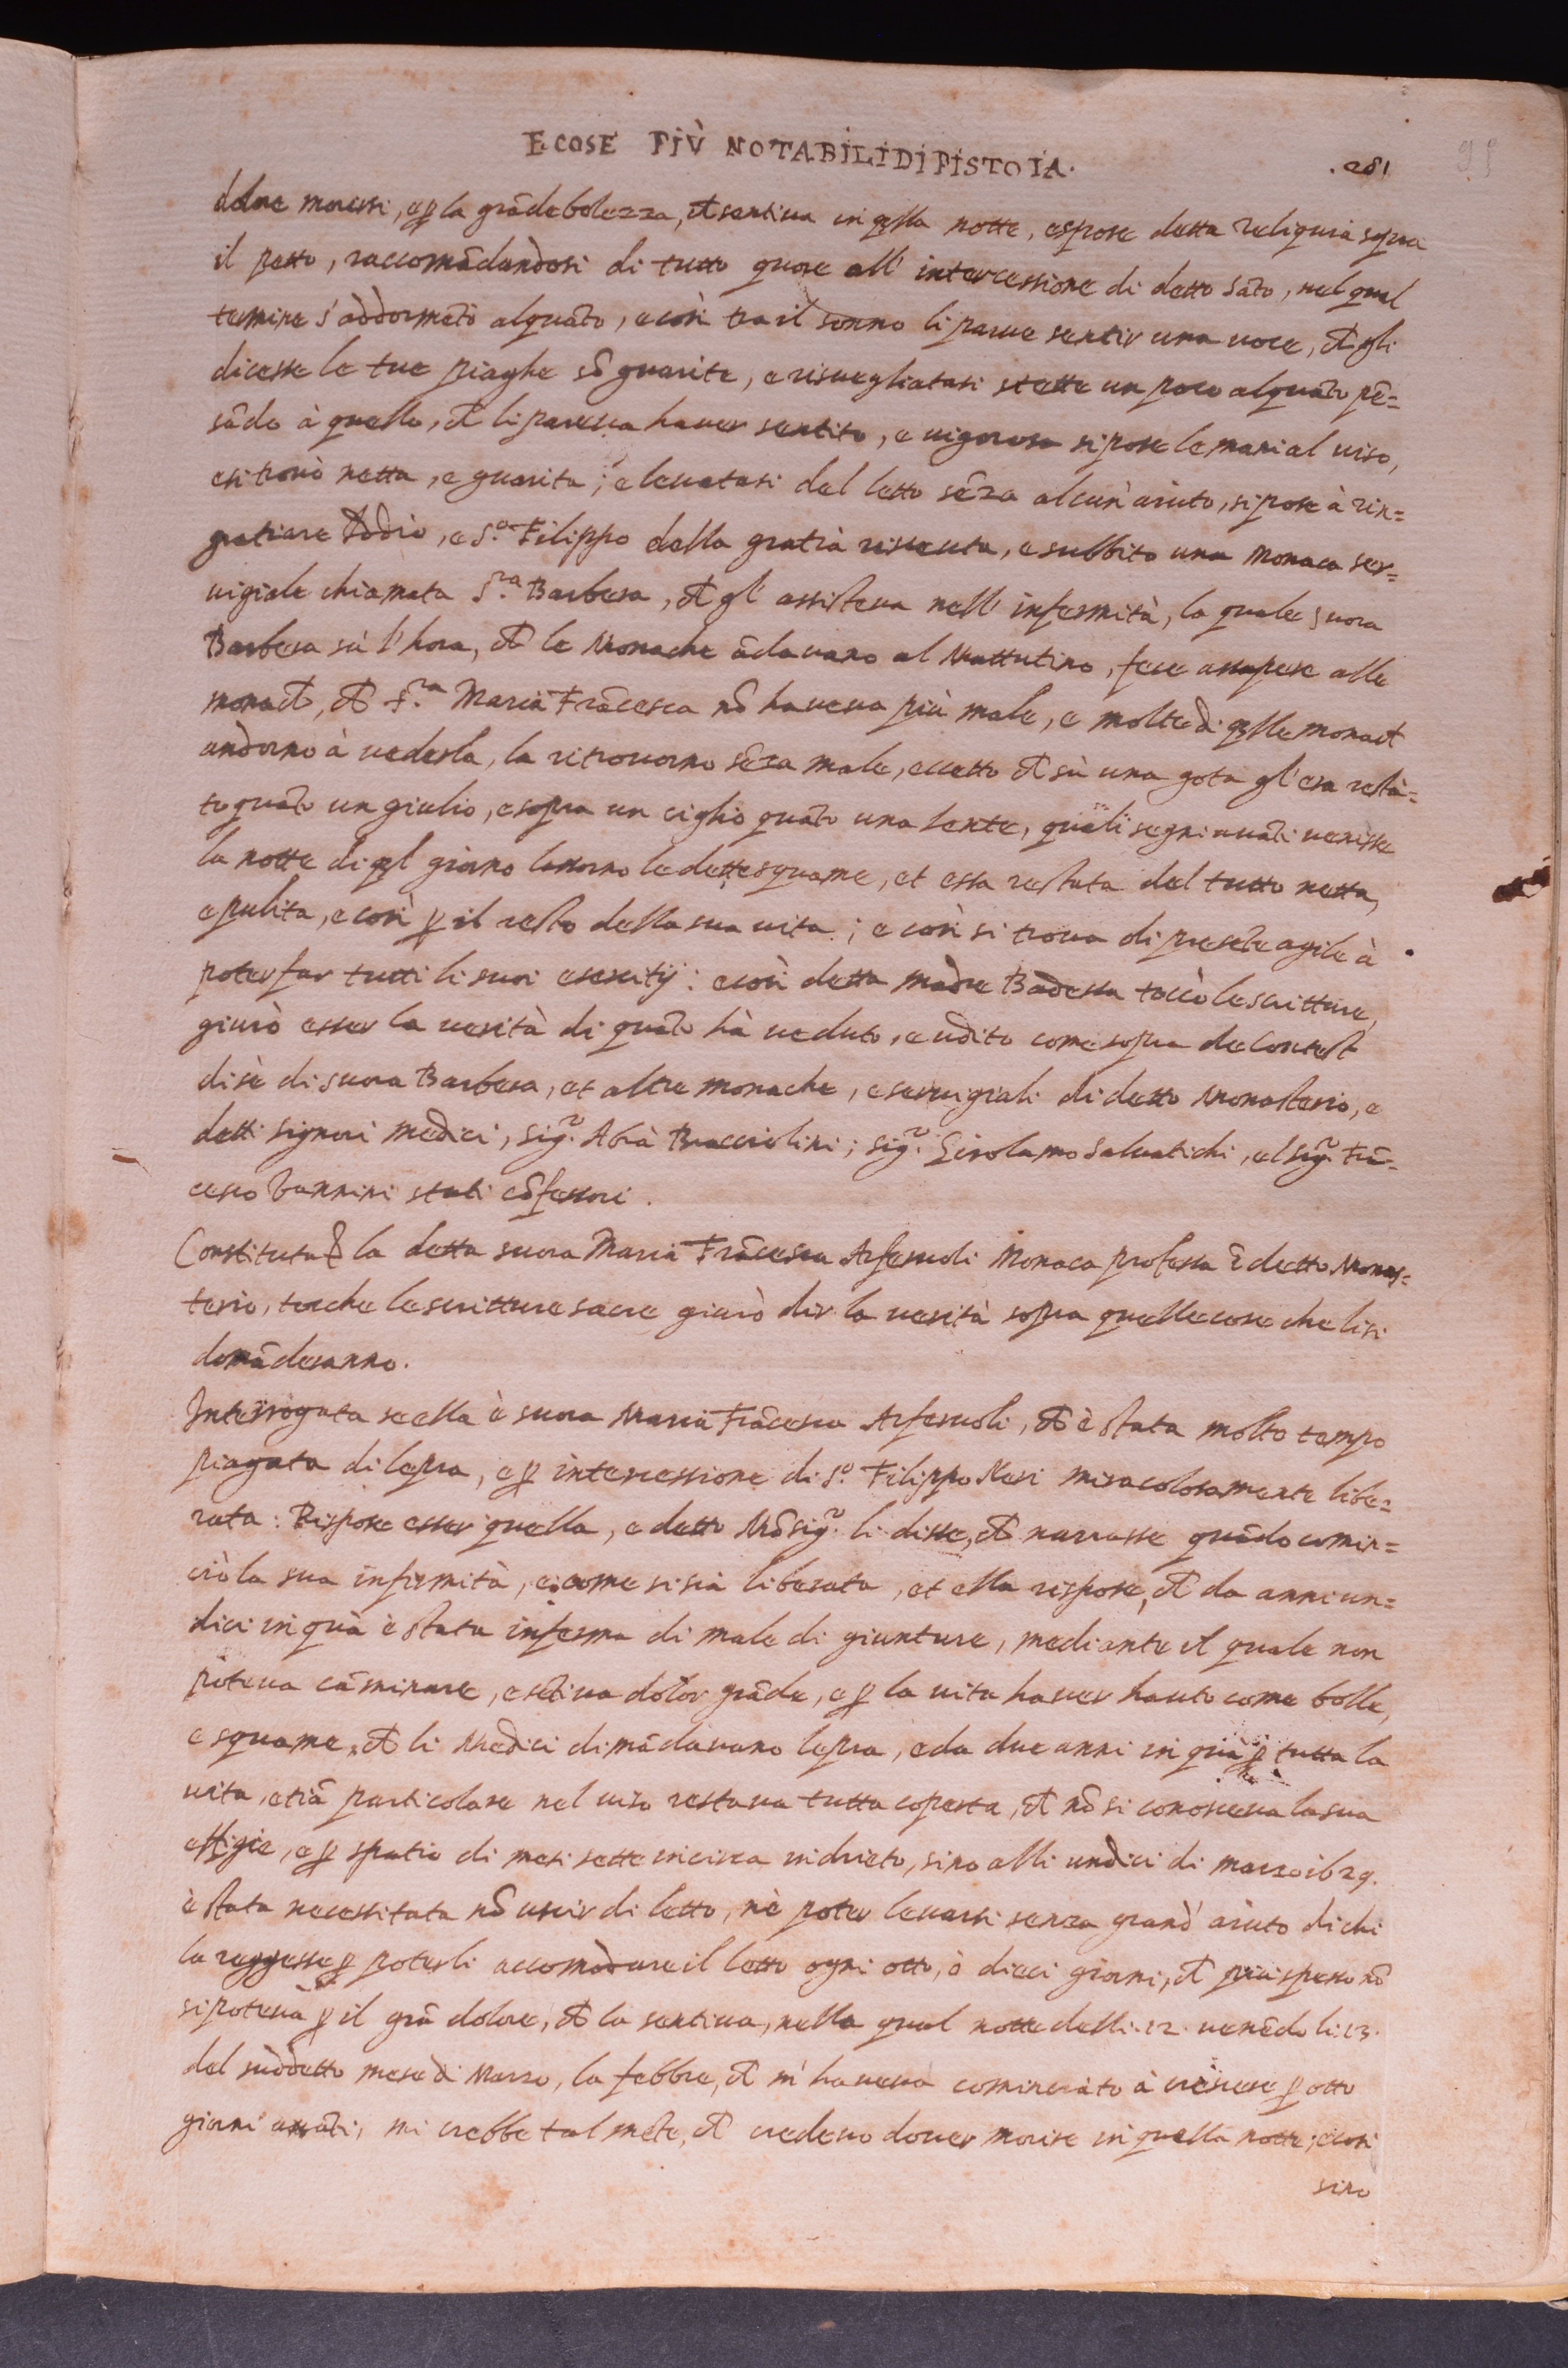 E COSE PIÙ NOTABILI DI PISTOIA.
.281
95
dolore moressi, e ꝑ la grā debolezza, ch̄ sentiua in q̄lla notte, espose detta reliquia sopra
il petto, raccomādandosi di tutto quore all' intercessione di detto Sāto, nel qual
termine s'addormētò alquāto, e così tra il sonno li parue sentir una uoce, ch̄ gli
dicesse le tue piaghe sō guarite, e risuegliatasi stette un poco alquāto pē=
sādo à quello, ch̄ li pareua hauer sentito, e uigorosa si pose le mani al uiso,
e si trouò netta, e guarita; e leuatasi del letto sēza alcun' aiuto, si pose à rin=
gratiare Iddio, e S.º Filippo della gratia riceuta, e subbito una Monaca ser=
uigiale chiamata S.ra Barbera, ch̄ gl' assisteua nell' infermità, la quale suora
Barbera sù l'hora, ch̄ le Monache ādauano al Mattutino, fece assapere alle
monach̄, ch̄ S.ra Maria Frācesca nō haueua più male, e molte di q̄lle monach̄
andorno à uederla, la ritrouorno sēza male, eccetto ch̄ sù una gota gl'era resta=
to quāto un giulio, e sopra un ciglio quāto una lente, quali segni auāti uenisse
la notte di q̄l giorno lassorno le dette squame, et essa restata del tutto netta,
e pulita, e così ꝑ il resto della sua uita; e così si troua di presēte agile à
poter far tutti li suoi esercitij: e così detta Madre Badessa toccò le scritture,
giurò esser la uerità di quāto hà ueduto, e udito come sopra de Contest
di sè di suora Barbera, et altre monache, e seruigiali di detto Monasterio, e
detti signori medici, sig.r Abrà Bracciolini; sig.r Girolamo Saluatichi, e'l sig.r Frā=
cesco Vannini stati cōfessori.
Constituta ꝑ la detta suora Maria Frācesca Arferuoli Monaca professa ī detto Monas=
terio, tocche le scritture sacre giurò dir la uerità sopra quelle cose che li si
domāderanno.
Interrogata se ella è suora Maria Frācesca Arferuoli, ch̄ è stata molto tempo
piagata di lepra, e ꝑ intercessione di S.º Filippo Neri miracolosamente libe=
rata: Rispose esser quella, e detto Mōsig.r li disse, ch̄ narrasse quādo comin=
ciò la sua infirmità, e come si sia liberata, et ella rispose, ch̄ da anni un=
dici in quà è stata inferma di male di giunture, mediante il quale non
poteua cāminare, e sētiua dolor grāde, e ꝑ la uita hauer hauto come bolle,
e squame, ch̄ li Medici dimādauano lepra, e da due anni in quà ꝑ tutta la
uita, e tiā particolare nel uiso restaua tutta coperta, ch̄ nō si conosceua la sua
effigie, e ꝑ spatio di mesi sette in circa indrieto, sino alli undici di marzo 1629.
è stata necessitata nō uscir di letto, nè poter leuarsi senza grand' aiuto di chi
la reggesse ꝑ poterli accomodare il letto ogni otto, ò dieci giorni, ch̄ più spesso nō
si poteua ꝑ il grā dolore, ch̄ la sentiua, nella qual notte delli .12. uenēdo li .13.
del suddetto mese di Marzo, la febbre, ch̄ m' haueua cominciato à crescere ꝑ otto
giorni auāti, mi crebbe talmēte, ch̄ credeuo douer morire in quella notte; e così
sino